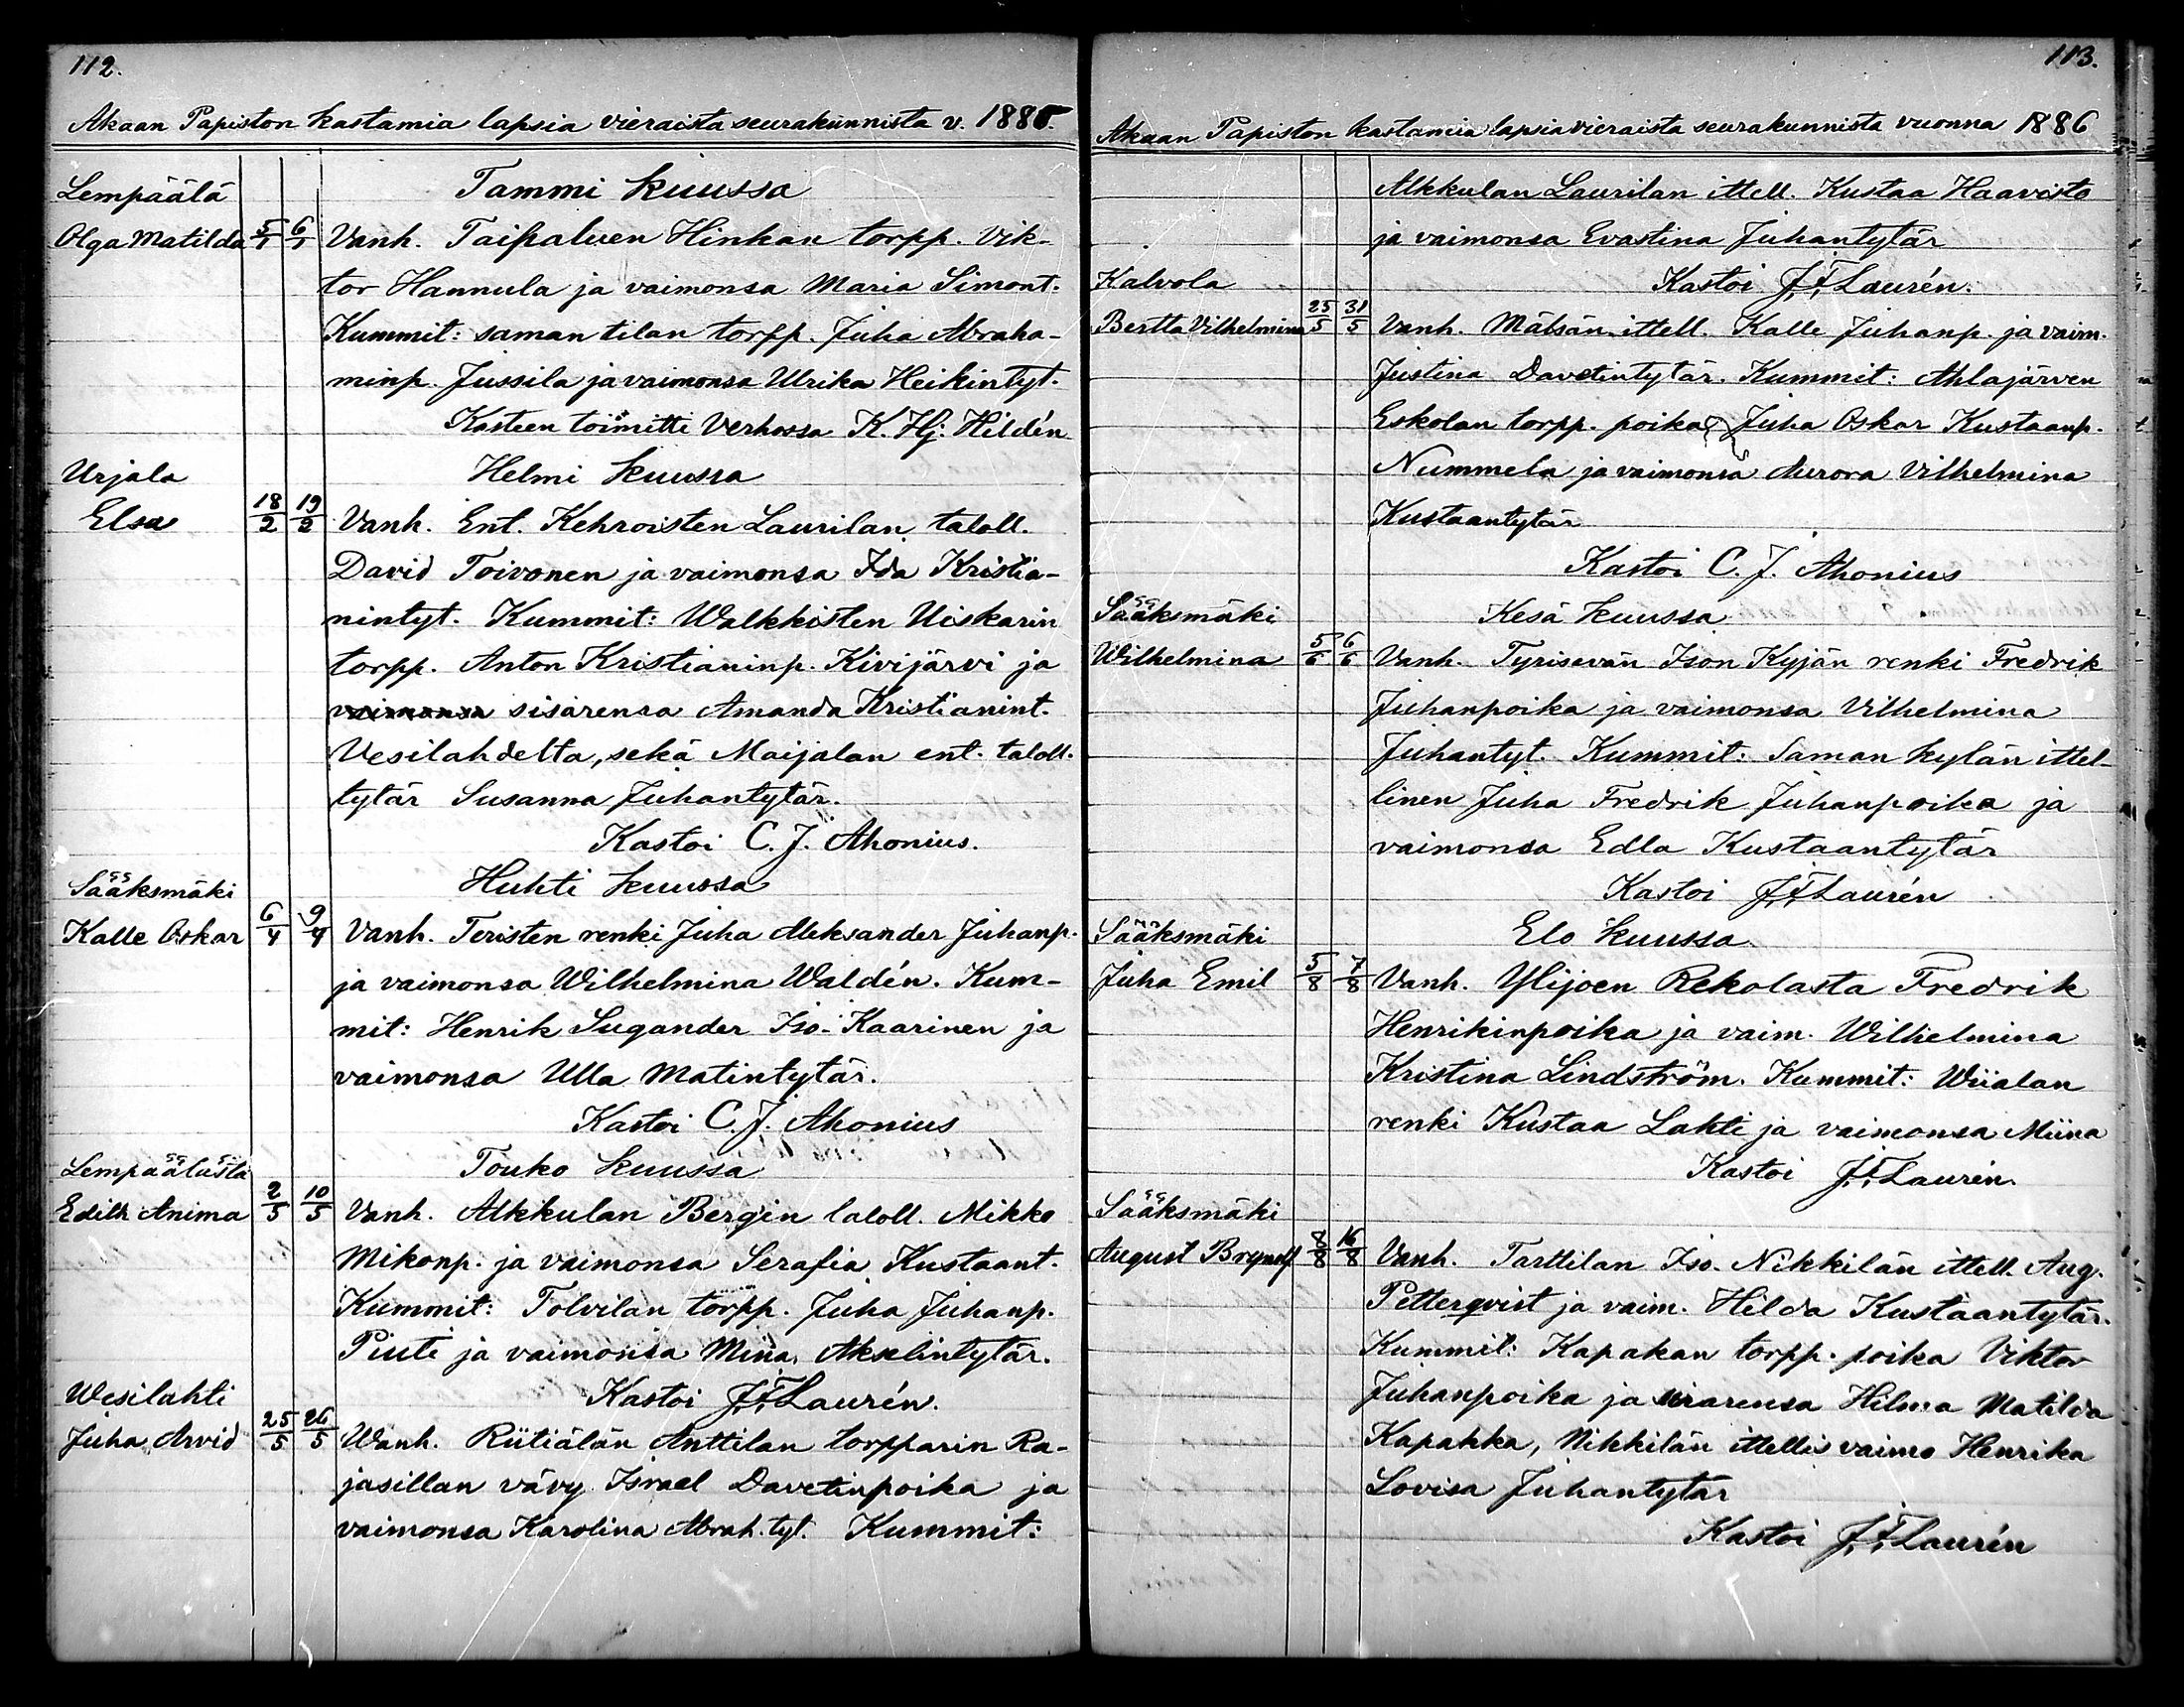 112.
Akaan Papiston kastamia lapsia vieraista seurakunnista v. 1886.
Tammi kuussa
Lempäälä
Olga Matilda 5/1 6/1 Vanh. Taipaluen Hinkan torpp. Vik-
tor Hannula ja vaimonsa Maria Simont.
Kummit: saman tilan torpp. Juha Abraha-
minp. Jussila ja vaimonsa Ulrika Heikintyt.
Kasteen toimitti Verhossa K. Hj: Hildén
Helmi kuussa
Urjala
Elsa 18/2 19/2 Vanh. Ent. Kehroisten Laurilan taloll.
David Toivonen ja vaimonsa Ida Kristia-
nintyt. Kummit: Walkkisten Uiskarin
torpp. Anton Kristianinp. Kivijärvi ja
vaimonsa sisarensa Amanda Kristianint.
Vesilahdelta, sekä Maijalan ent. taloll.
tytär Susanna Juhantytär.
Kastoi C. J. Ahonius.
Huhti kuussa
Sääksmäki
Kalle Oskar 6/4 9/4 Vanh. Teristen renki Juha Aleksander Juhanp.
ja vaimonsa Wilhelmina Waldén. Kum-
mit: Henrik Sugander Iso-Kaarinen ja
vaimonsa Ulla Matintytär.
Kastoi C. J. Ahonius
Touko kuussa
Lempäälästä
Edith Anima 2/5 10/5 Vanh. Alkkulan Bergin taloll. Mikko
Mikonp. ja vaimonsa Serafia Kustaant.
Kummit: Tolvilan torpp. Juha Juhanp.
Piuti ja vaimonsa Mina Akselintytär.
Kastoi J. F. Laurén.
Wesilahti
Juha Arvid 25/5 26/5 Wanh. Riitiälän Anttilan torpparin Ra-
jasillan vävy Israel Davetinpoika ja
vaimonsa Karolina Abrah.tyt. Kummit:
113.
Akaan Papiston kastamia lapsia vieraista seurakunnista vuonna 1886
Alkkulan Laurilan ittell. Kustaa Haavisto
ja vaimonsa Evastina Juhantytär
Kastoi J. F. Laurén.
Kalvola
Bertta Vilhelmina 25/5 31/5 Vanh. Mälsän ittell. Kalle Juhanp. ja vaim.
Justina Davetintytär. Kummit: Ahlajärven
Eskolan torpp. poika Juha Oskar Kustaanp.
Nummela ja vaimonsa Aurora Vilhelmina
Kustaantytär
Kastoi C. J. Ahonius
Kesä kuussa
Sääksmäki
Wilhelmina 5/6 6/6 Vanh. Tyrisevän Ison Kyjän renki Fredrik
Juhanpoika ja vaimonsa Vilhelmina
Juhantyt. Kummit: Saman kylän ittel-
linen Juha Fredrik Juhanpoika ja
vaimonsa Edla Kustaantytär
Kastoi J. F. Laurén
Elo kuussa
Sääksmäki
Juha Emil 5/8 7/8 Vanh. Ylijoen Rekolasta Fredrik
Henrikinpoika ja vaim. Wilhelmina
Kristina Lindström. Kummit: Wiialan
renki Kustaa Lahti ja vaimonsa Miina
Kastoi J. F. Laurén.
Sääksmäki
August Brynolf 8/8 16/8 Vanh. Tarttilan Iso. Nikkilän ittell. Aug.
Petterqvist ja vaim. Hilda Kustaantytär.
Kummit: Kapakan torpp. poika Viktor
Juhanpoika ja sisarensa Hilma Matilda
Kapakka, Nikkilän ittellis vaimo Henrika
Lovisa Juhantytär
Kastoi J. F. Laurén